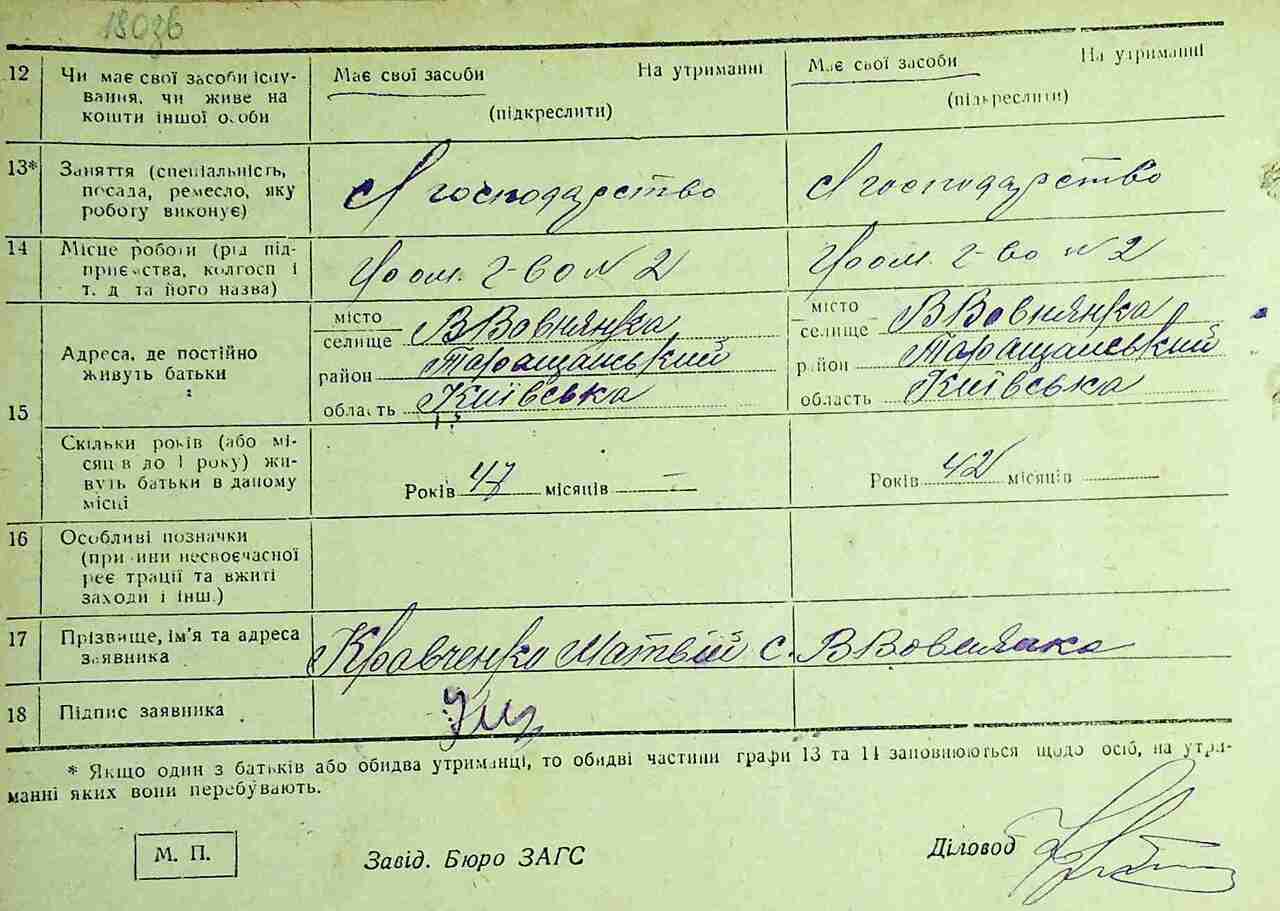 180зв
12 Чи має свої засоби існу- Має свої засоби На утриманні Має свої засоби На утриманні
вання, чи живе на (підкреслити) (підкреслити)
кошти іншої особи
13* Заняття (спеціальність, С/господарство С/господарство
посада, ремесло, яку
роботу виконує)
14 Місце роботи (рід під- г-во N 2 г-во N 2
приємства, колгосп і
т. д та його назва)
15 Адреса, де постійно живуть батьки
місто селище В Вовнянка місто селище В Вовнянка
район Таращанський район Таращанський
область Київська область Київська
Скільки років (або мі-
сяців до 1 року) жи-
вуть батьки в даному
місці
Років 47 місяців — Років 42 місяців
16 Особливі позначки
(причини несвоєчасної
реєстрації та вжиті
заходи і інш.)
17 Прізвище, ім'я та адреса Кравченко Матвій С. В Вовнянка
заявника
18 Підпис заявника
* Якщо один з батьків або обидва утриманці, то обидві частини графи 13 та 14 заповнюються щодо осіб, на утри-
манні яких вони перебувають.
М. П. Завід. Бюро ЗАГС Діловод